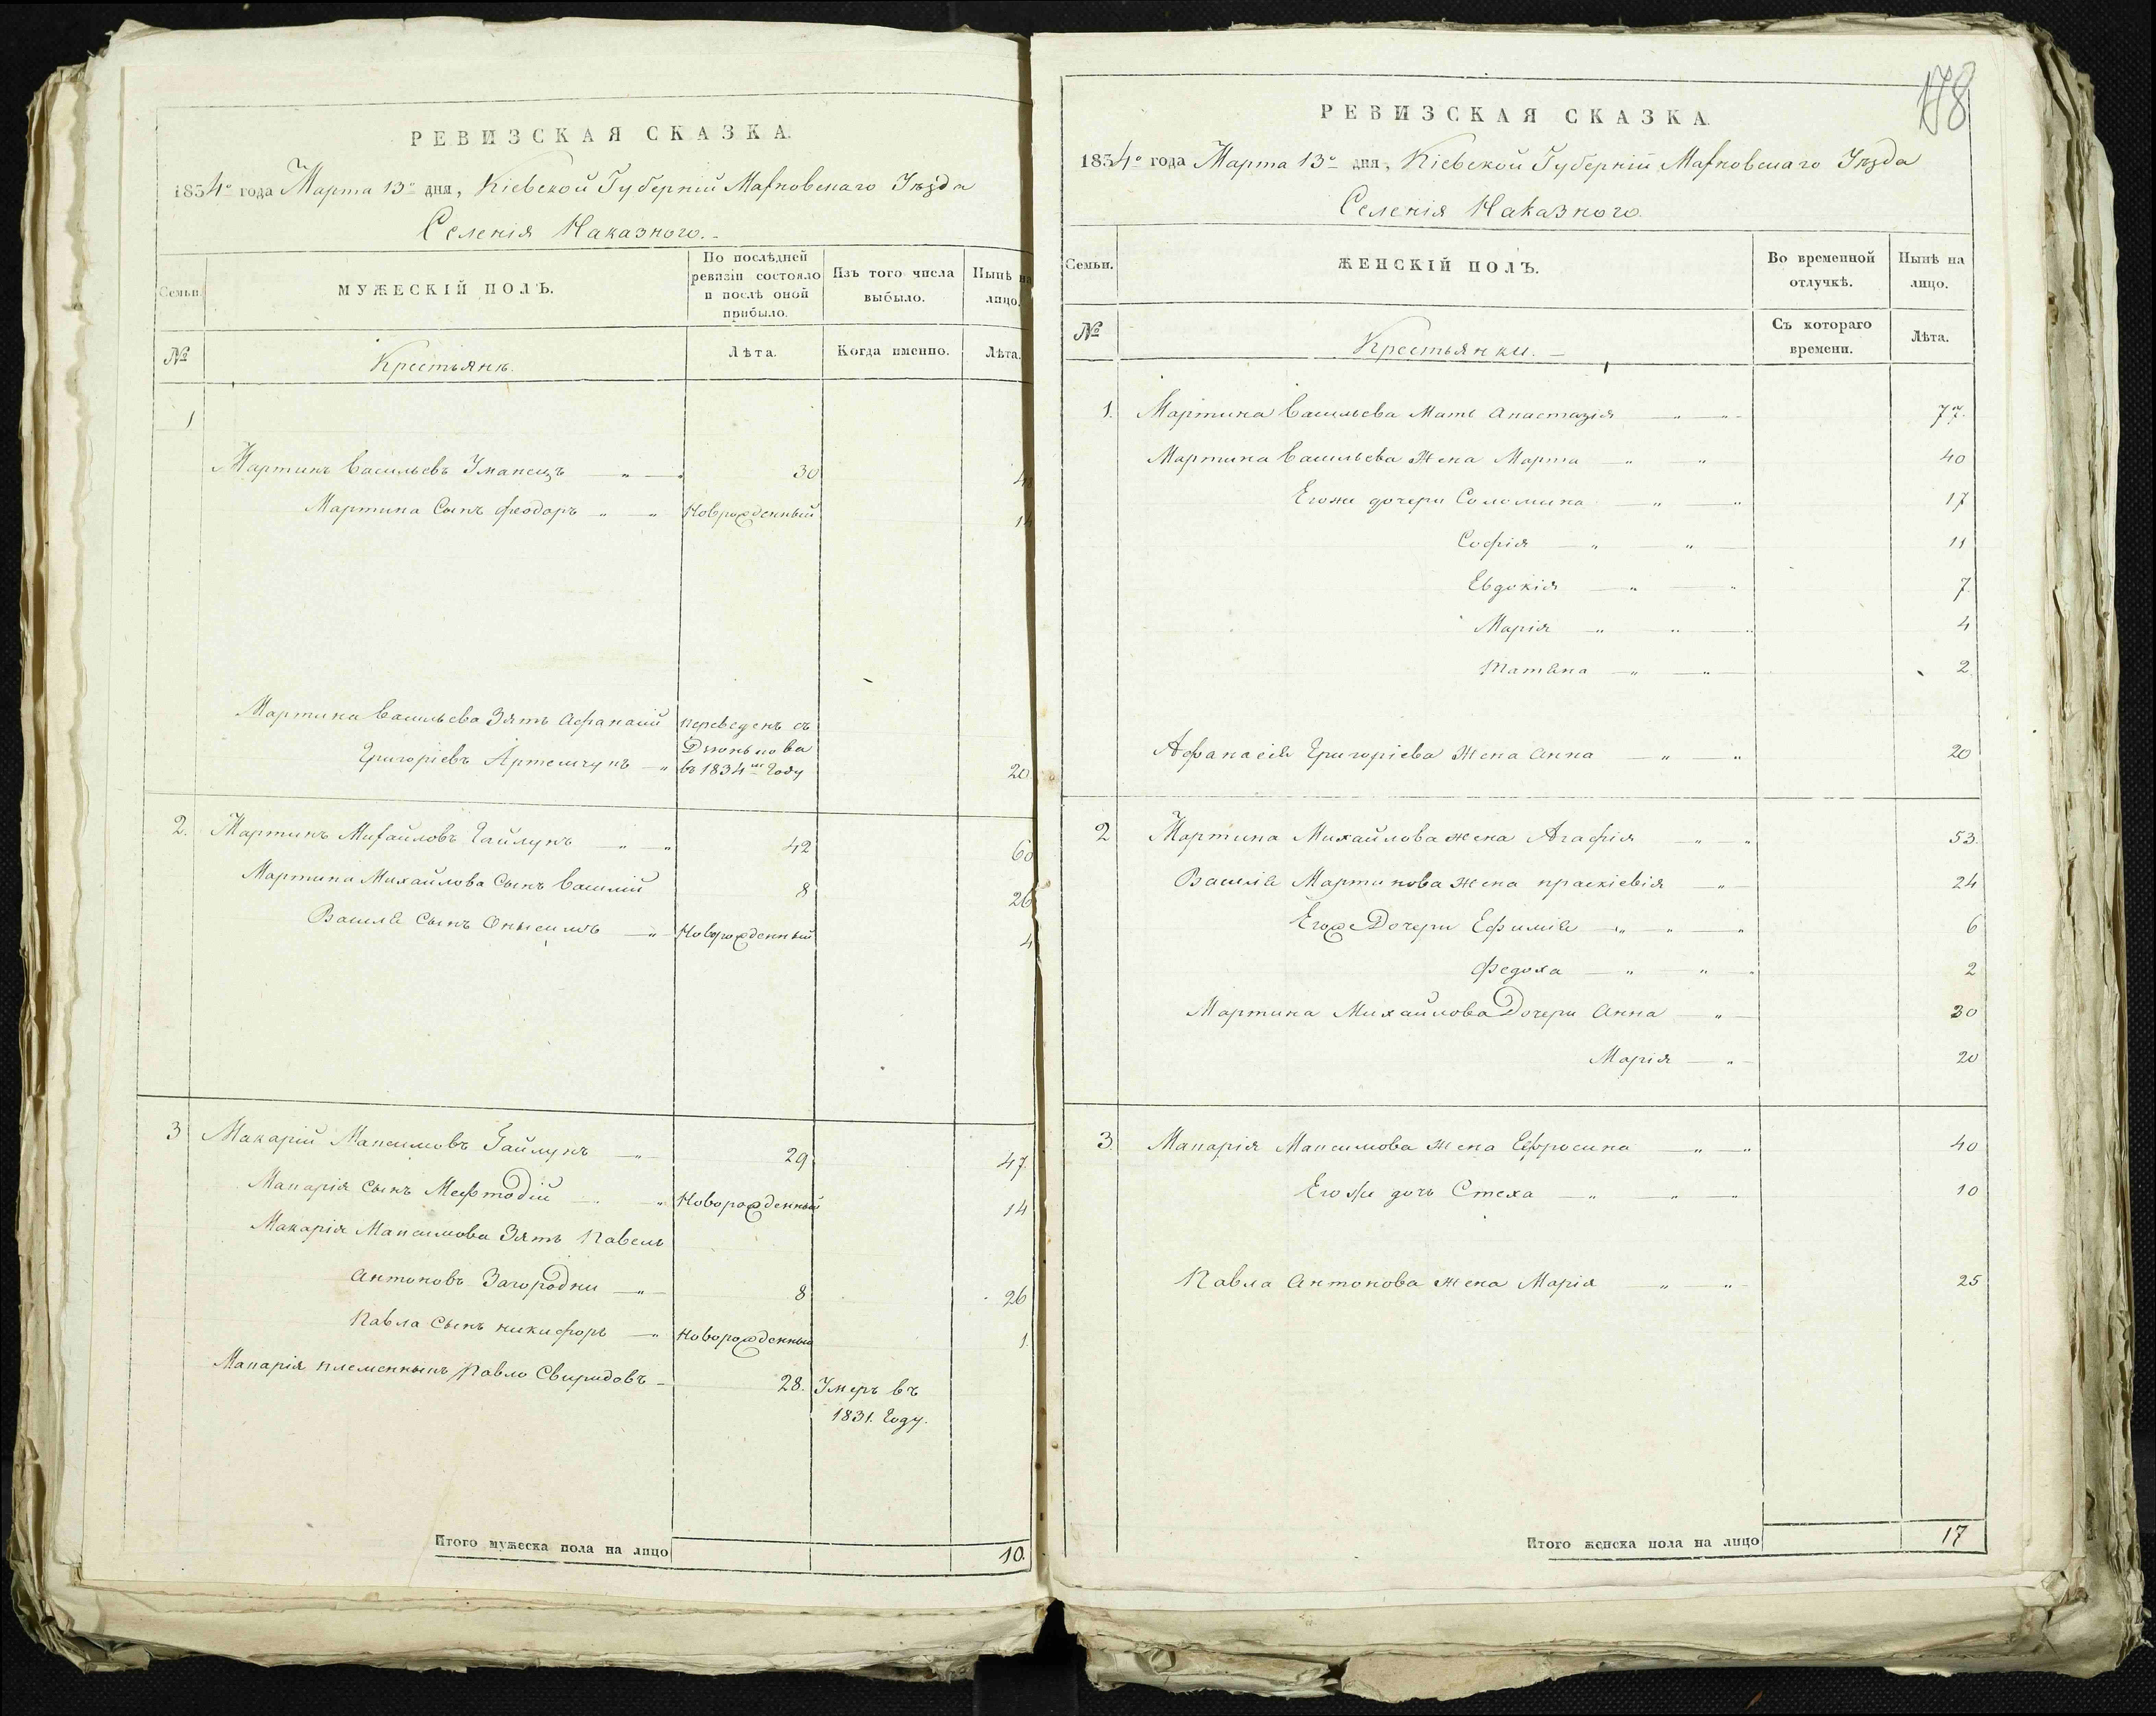 РЕВИЗСКАЯ СКАЗКА.
1834го года Марта 13го дня, Кіевской Губерніи Махновскаго Уѣзда
Селенія Наказного.
Семьи.
МУЖЕСКІЙ ПОЛЪ.
По послѣдней ревизіи состояло и послѣ оной прибыло.
Изъ того числа выбыло.
Нынѣ на лицо.
№
Крестьянъ.
Лѣта.
Когда именно.
Лѣта.
1
Мартинъ Васильевъ Уманецъ 30
Мартина Сынъ Феодоръ Новрожденный 14
Мартина Васильева Зять Афанасій переведенъ съ
Григоріевъ Артемчукъ в 1834м Году 20
2. Мартинъ Михайловъ Гайлукъ 42 60
Мартина Михайлова Сынъ Василий 8 26
Василя Сынъ Онысимъ Новорожденный 4
3 Макарій Максимовъ Гайлукъ 29 47
Макарія Сынъ Мефтодій Новорожденный 14
Макарія Максимова Зять Павелъ
Антоновъ Загородни 8 26
Павла Сынъ никифоръ Новорожденный 1.
Макарія племенныкъ Павло Свиридовъ 28. Умеръ въ
1831. Году.
Итого мужеска пола на лицо 10.
178
РЕВИЗСКАЯ СКАЗКА.
1834го года Марта 13го дня, Кіевской Губерніи Махновскаго Уѣзда
Селенія Наказного.
Семьи.
ЖЕНСКІЙ ПОЛЪ.
Во временной отлучкѣ.
Нынѣ на лицо.
№
Крестьянки.
Съ котораго времени.
Лѣта.
1. Мартина Васильева Мать Анастазія 77.
Мартина Васильева Жена Марта 40
Егоже дочери Соломина 17
Софія 11
Евдокія 7.
Марія 4
Татіана 2
Афанасія Григоріева Жена Анна 20
2 Мартина Михайлова жена Агафія 53.
Василя Мартинова жена праскіевія 24
Егоже Дочери Ефимія 6
Федоха 2
Мартина Михайлова Дочери Анна 30
Марія 20
3. Макарія Максимова жена Ефросина 40
Егоже дочь Стеха 10
Павла Антонова жена Марія 25
Итого женска пола на лицо 17